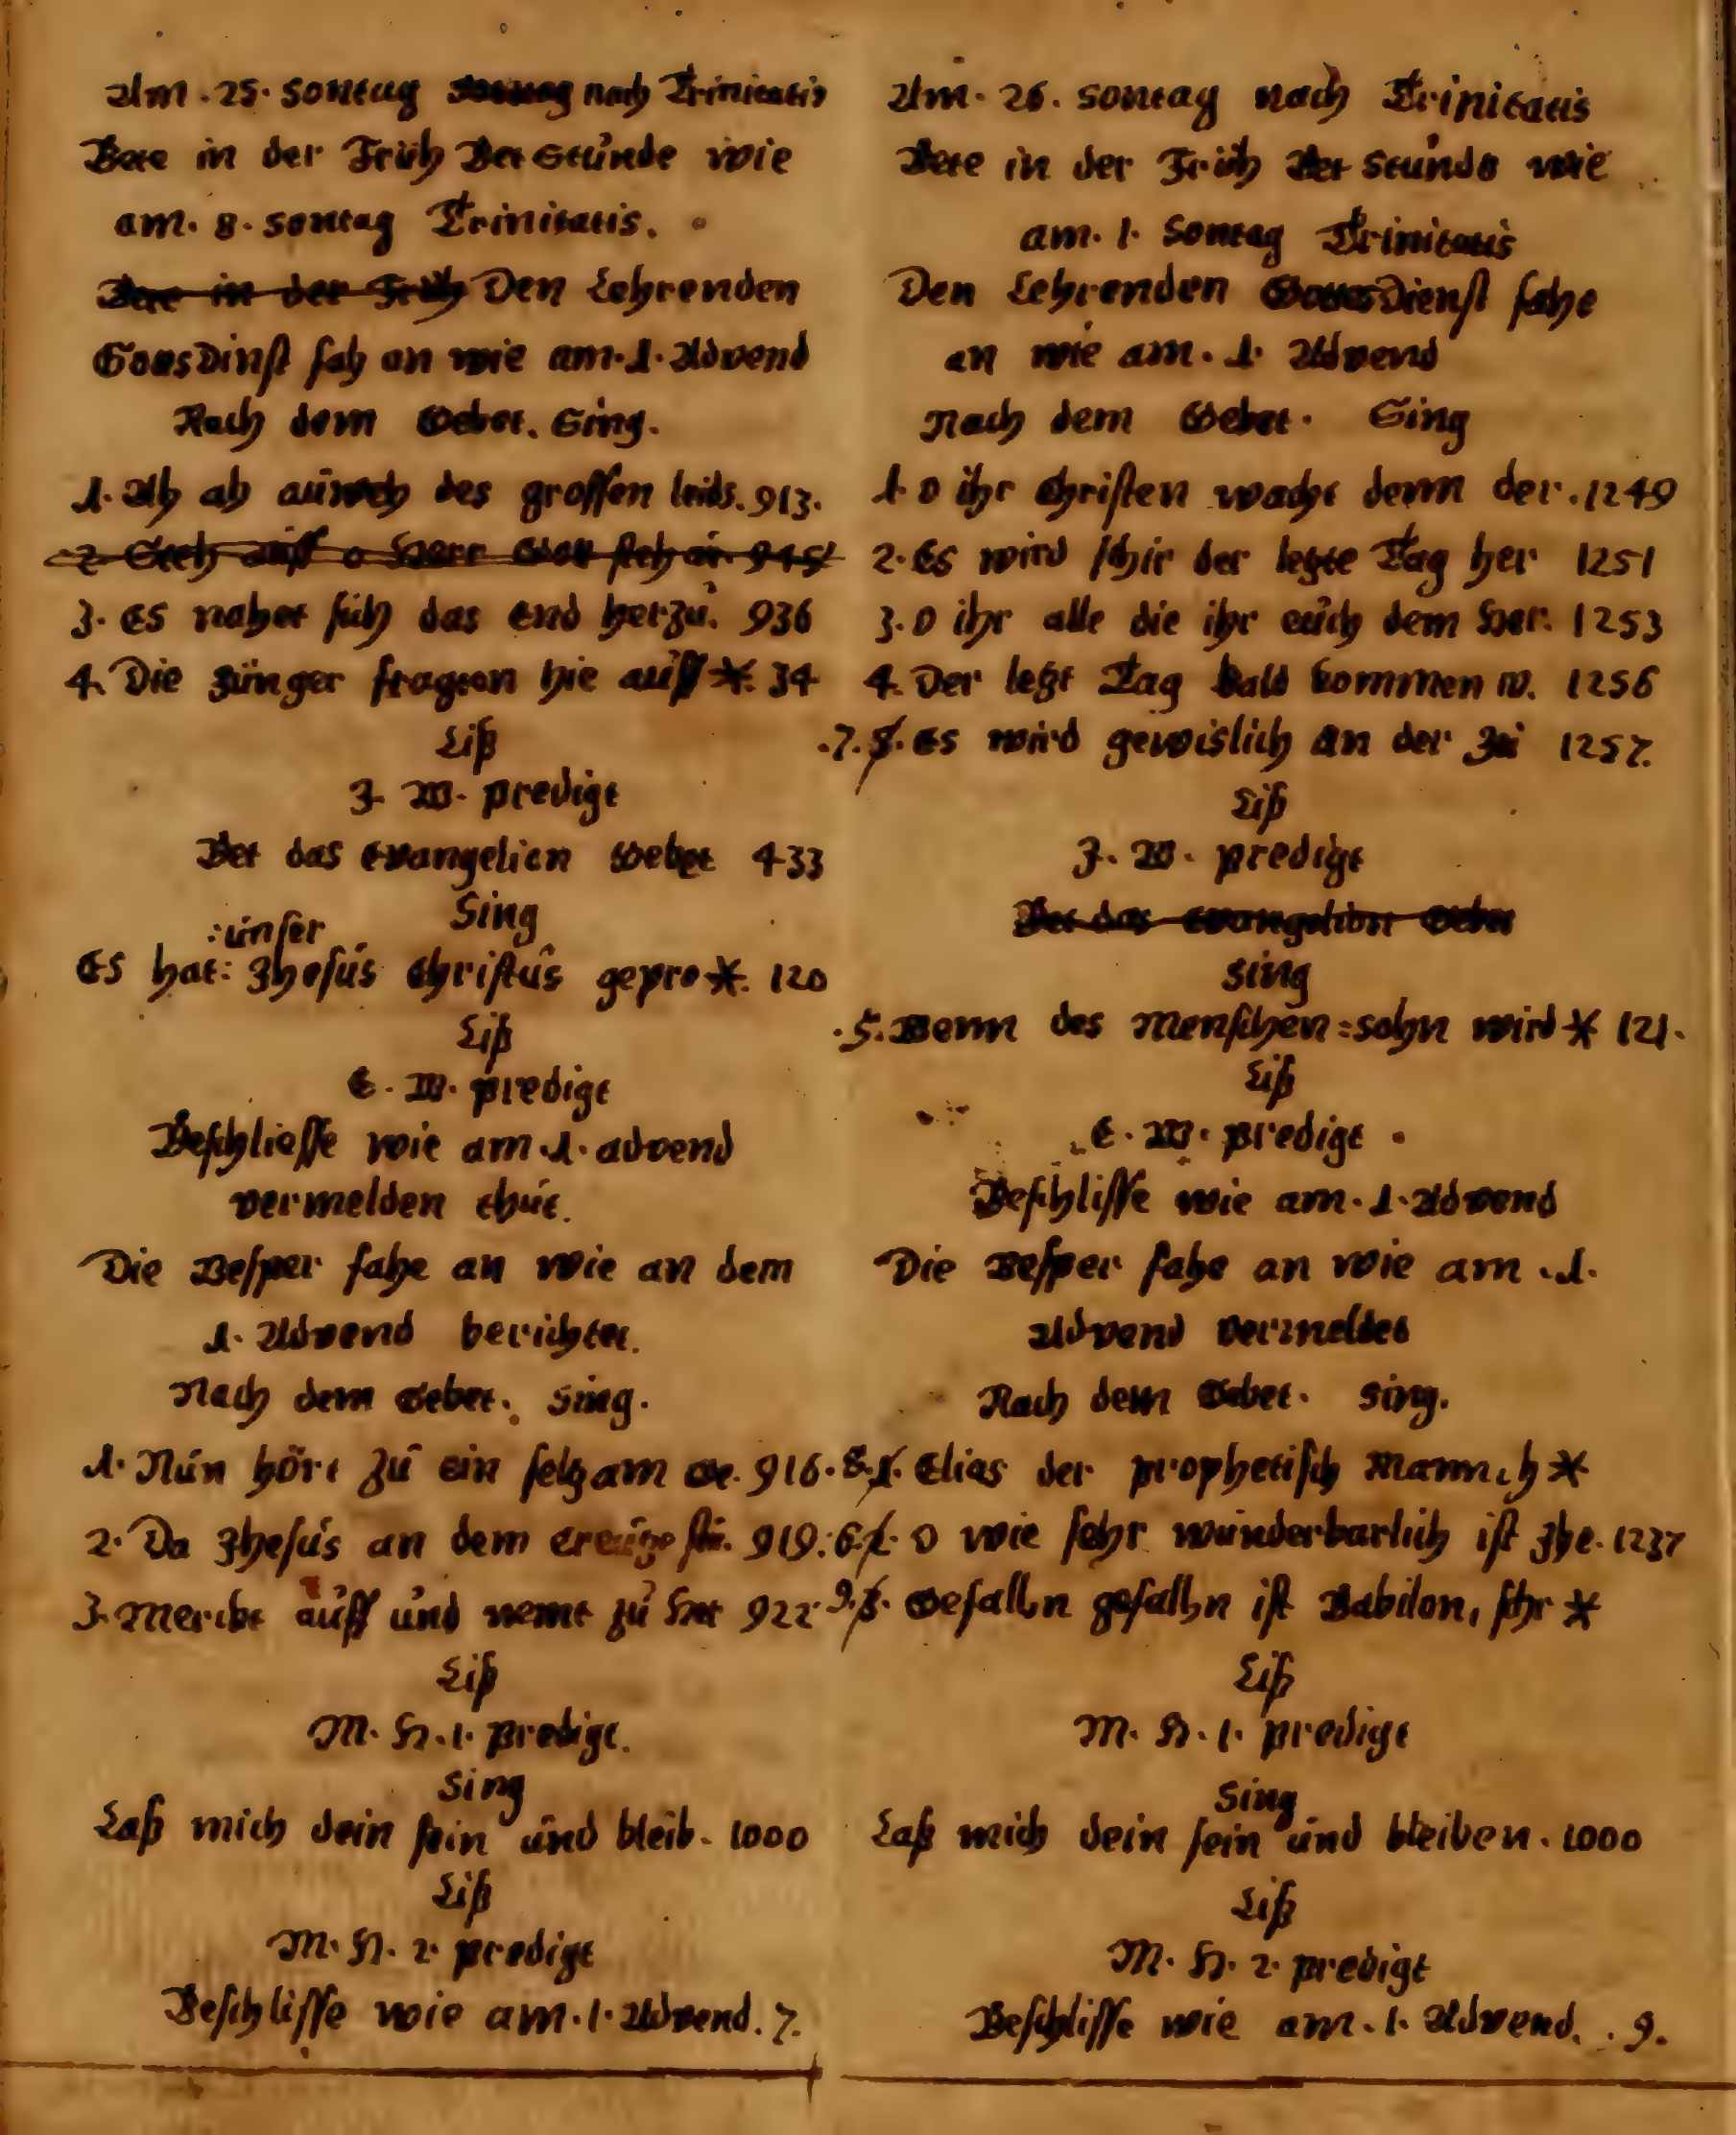 Am. 25. Sontag Sontag nach Trinitatis
Bete in der Früh Bet Stúnde wie
am. 8. Sontag Trinitatis.
Bete in der Früh Den Lehrenden
GottsDinst fah an wie am. 1. Advend
Nach dem Gebet. Sing.
1. Ah ah des grossen leids. 913.
3. Es nahet sich das end herzú. 936
4. Die Jünger fragten hie aúff *. 34
Liß
J. W. predigt
Bet das evangelion Gebet 433
Sing
:únser
Es hat: Jhesús Christús gepre *. 120
Liß
E. W. predigt
Beschliesse wie am. 1. advend
vermelden thút.
Die Vesper fahe an wie an dem
1. Advend berichtet.
Nach dem Gebet. Sing.
1. Nún hört zú ein selzam Ge. 916.
2. Da Jhesús an dem creútze 919.
3. Merckt aúff únd nemt zú 922
Liß
M. H. 1. predigt.
Sing
Laß mich dein sein únd bleib. 1000
Liß
M. H. 2. predigt
Beschlisse wie am. 1. Advend. 7.
Am. 26. Sontag nach Trinitatis
Bete in der Früh Bet Stúnde wie
am. 1. Sontag Trinitatis
Den Lehrenden GottsDienst fahe
an wie am. 1. Advend
Nach dem Gebet. Sing
1. O ihr Christen wacht denn der. 1249
2. Es wird schir der letzte Tag her 1251
3. O ihr alle die ihr eúch dem Her. 1253
4. Der letzt Tag bald kommen w. 1256
.7. 5. Es wird gewislich an der Zei 1257.
Liß
J. W. predigt
Bet das evangelion Gebet
Sing
.5. Wenn des Menschen=sohn wird * 121.
Liß
E. W. predigt
Beschlisse wie am. 1. Advend
Die Vesper fahe an wie am. 1.
Advend vermeldet
Nach dem Gebet. Sing.
8. 1. Elias der prophetisch Mann, h *
6. 2. O wie sehr wúnderbarlich ist Jhe. 1237
9. 3. Gefalln gefalln ist Babilon, sehr *
Liß
M. H. 1. predigt
Sing
Laß mich dein sein únd bleiben. 1000
Liß
M. H. 2. predigt
Beschlisse wie am. 1. Advend. . 9.